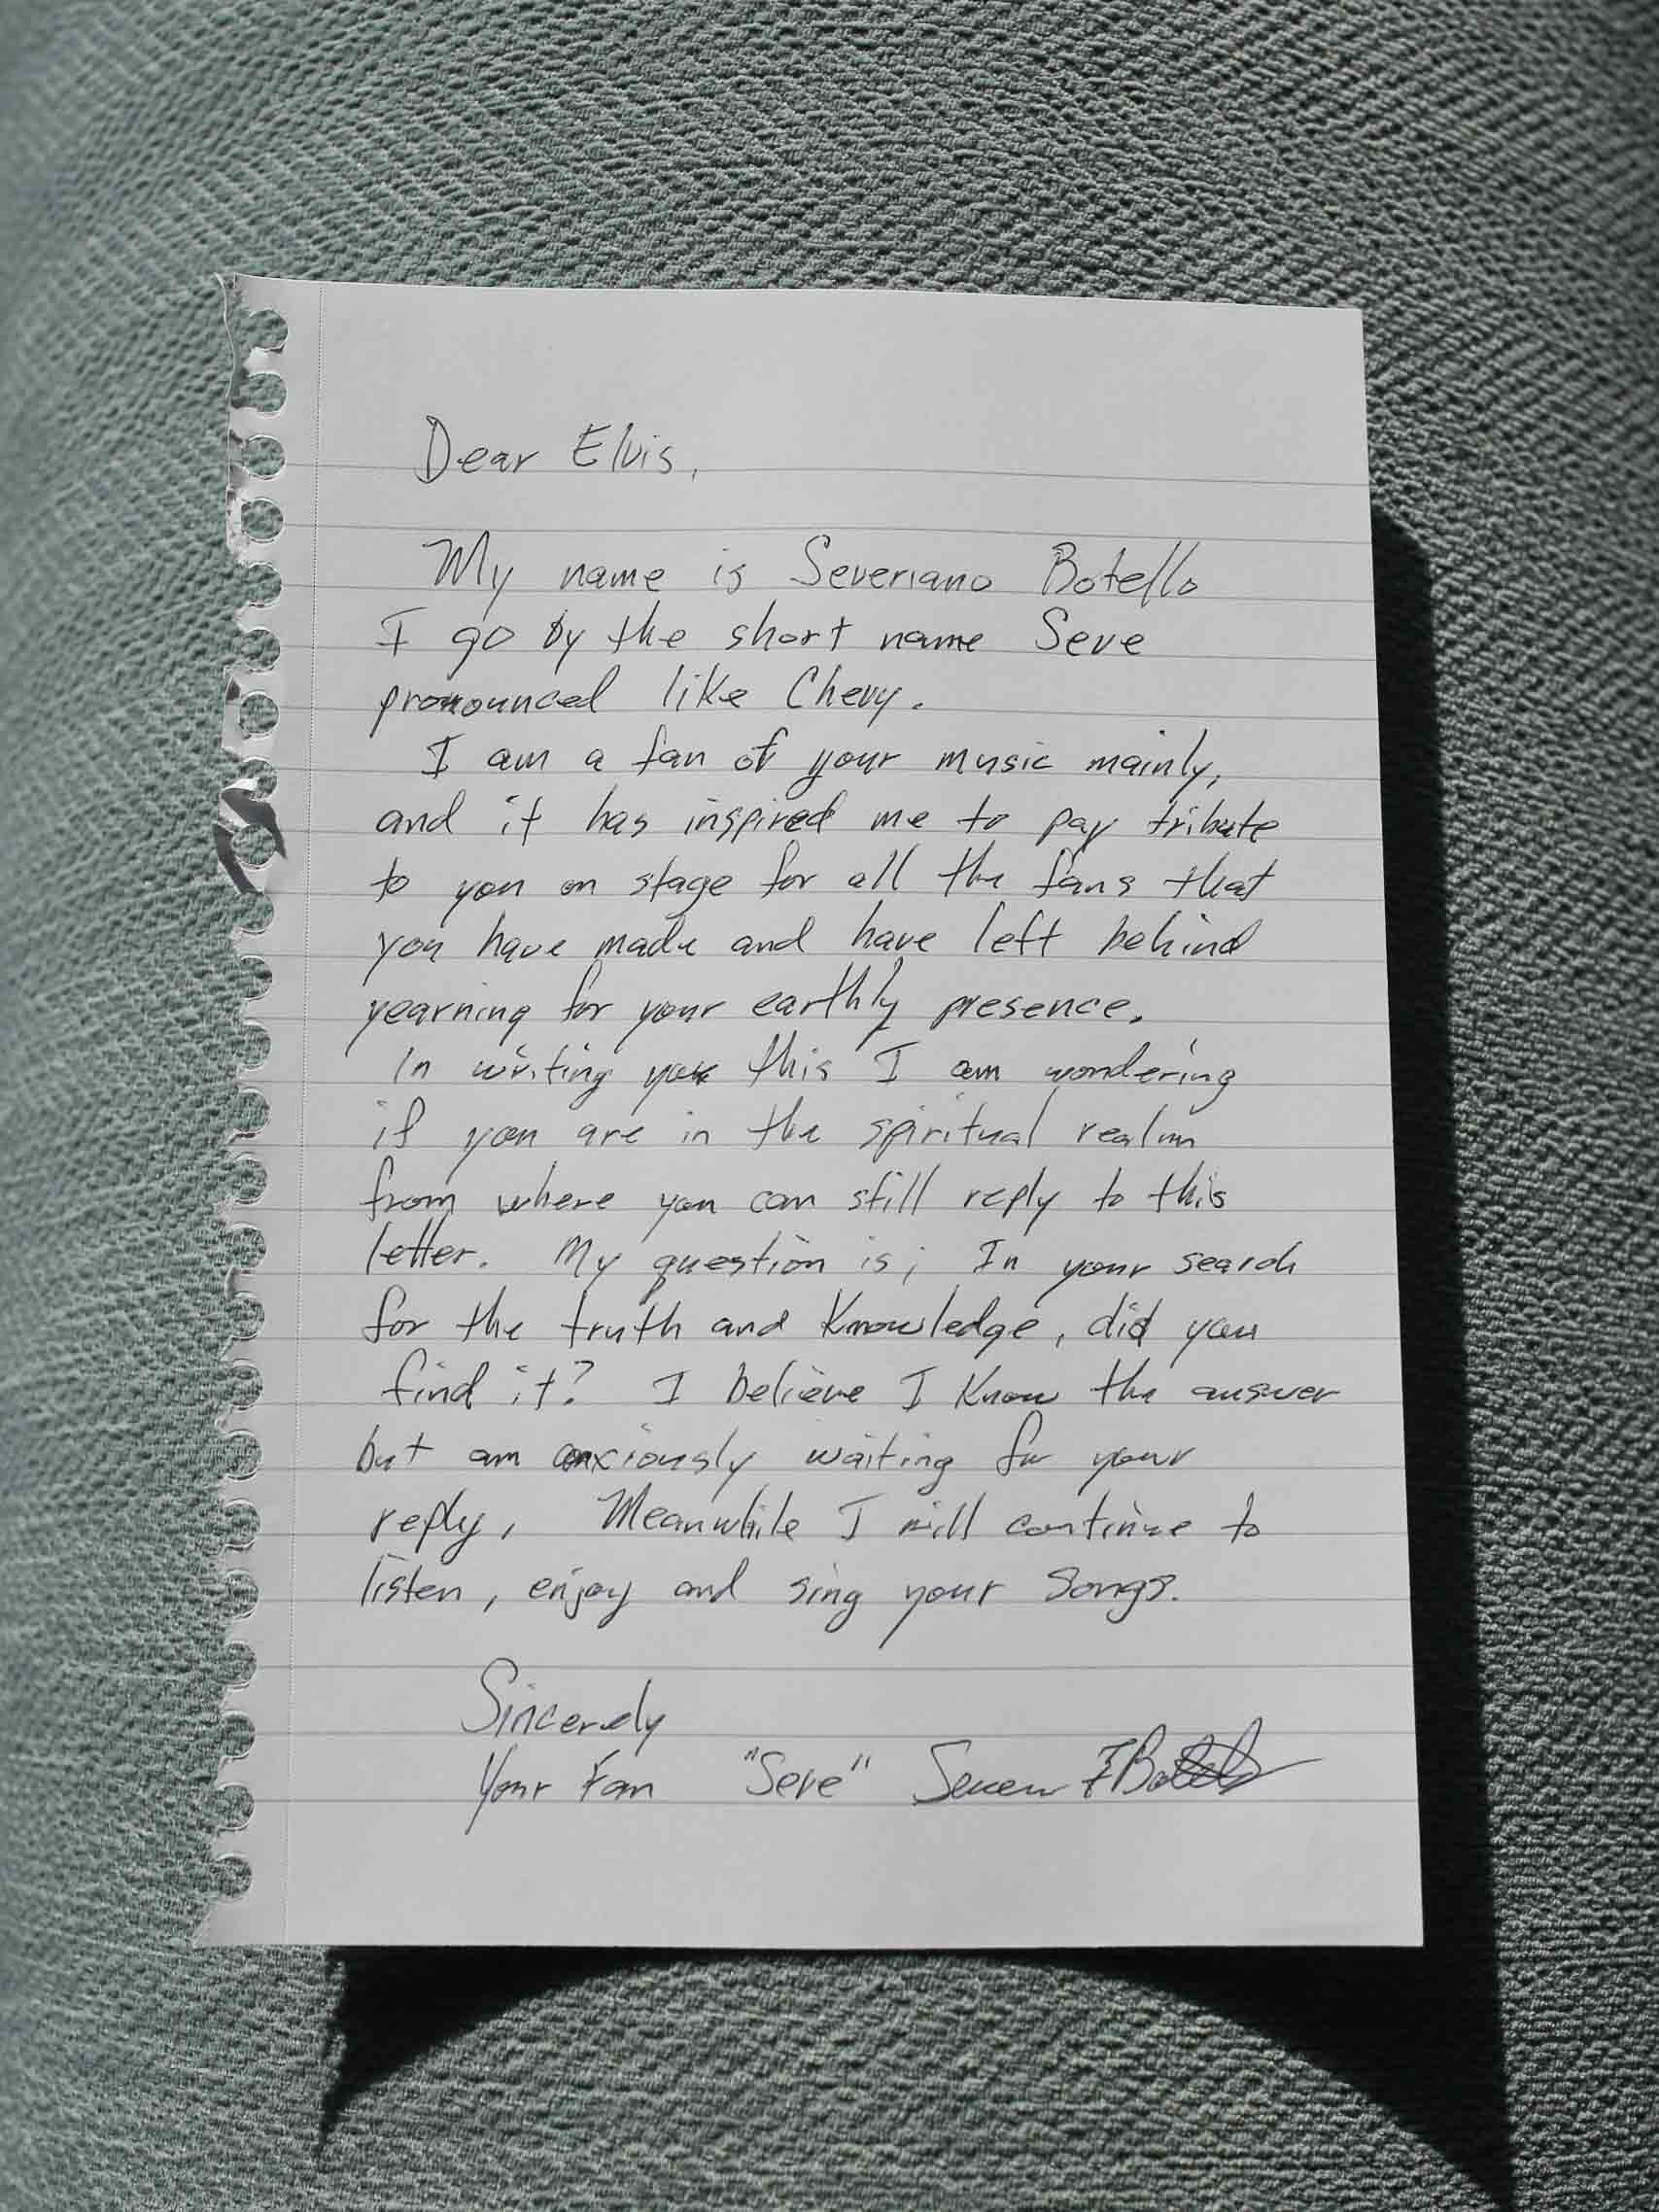 Dear Elvis,
My name is Severiano Botello
I go by the short name Seve
pronounced like Chevy.
I am a fan of your music mainly,
and it has inspired me to pay tribute
to you on stage for all the fans that
you have made and have left behind
yearning for your earthly presence.
In writing you this I am wondering
if you are in the spiritual realm
from where you can still reply to this
letter. My question is; In your search
for the truth and Knowledge, did you
find it? I believe I Know the answer
but am anxiously waiting for your
reply, Meanwhile I will continue to
listen, enjoy and sing your songs.
Sincerely
Your Fan "Seve"